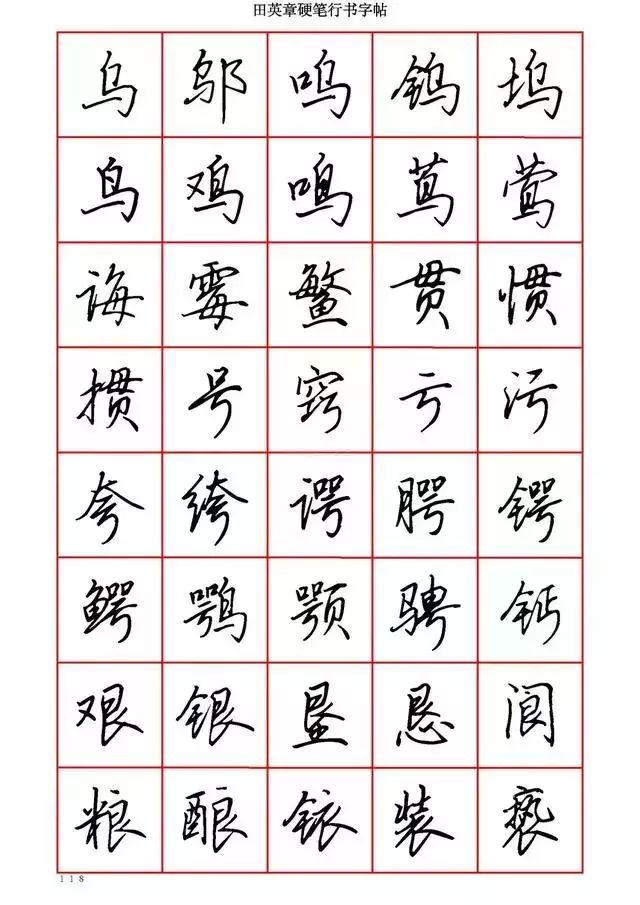 田英章硬笔行书字帖
乌邬呜钨坞
鸟鸡鸣茑莺
诲霉鳘贯惯
掼号窍亏污
夸绔谔腭锷
鳄鹗颚骋钙
艰银垦恳阆
粮酿铱装亵
118